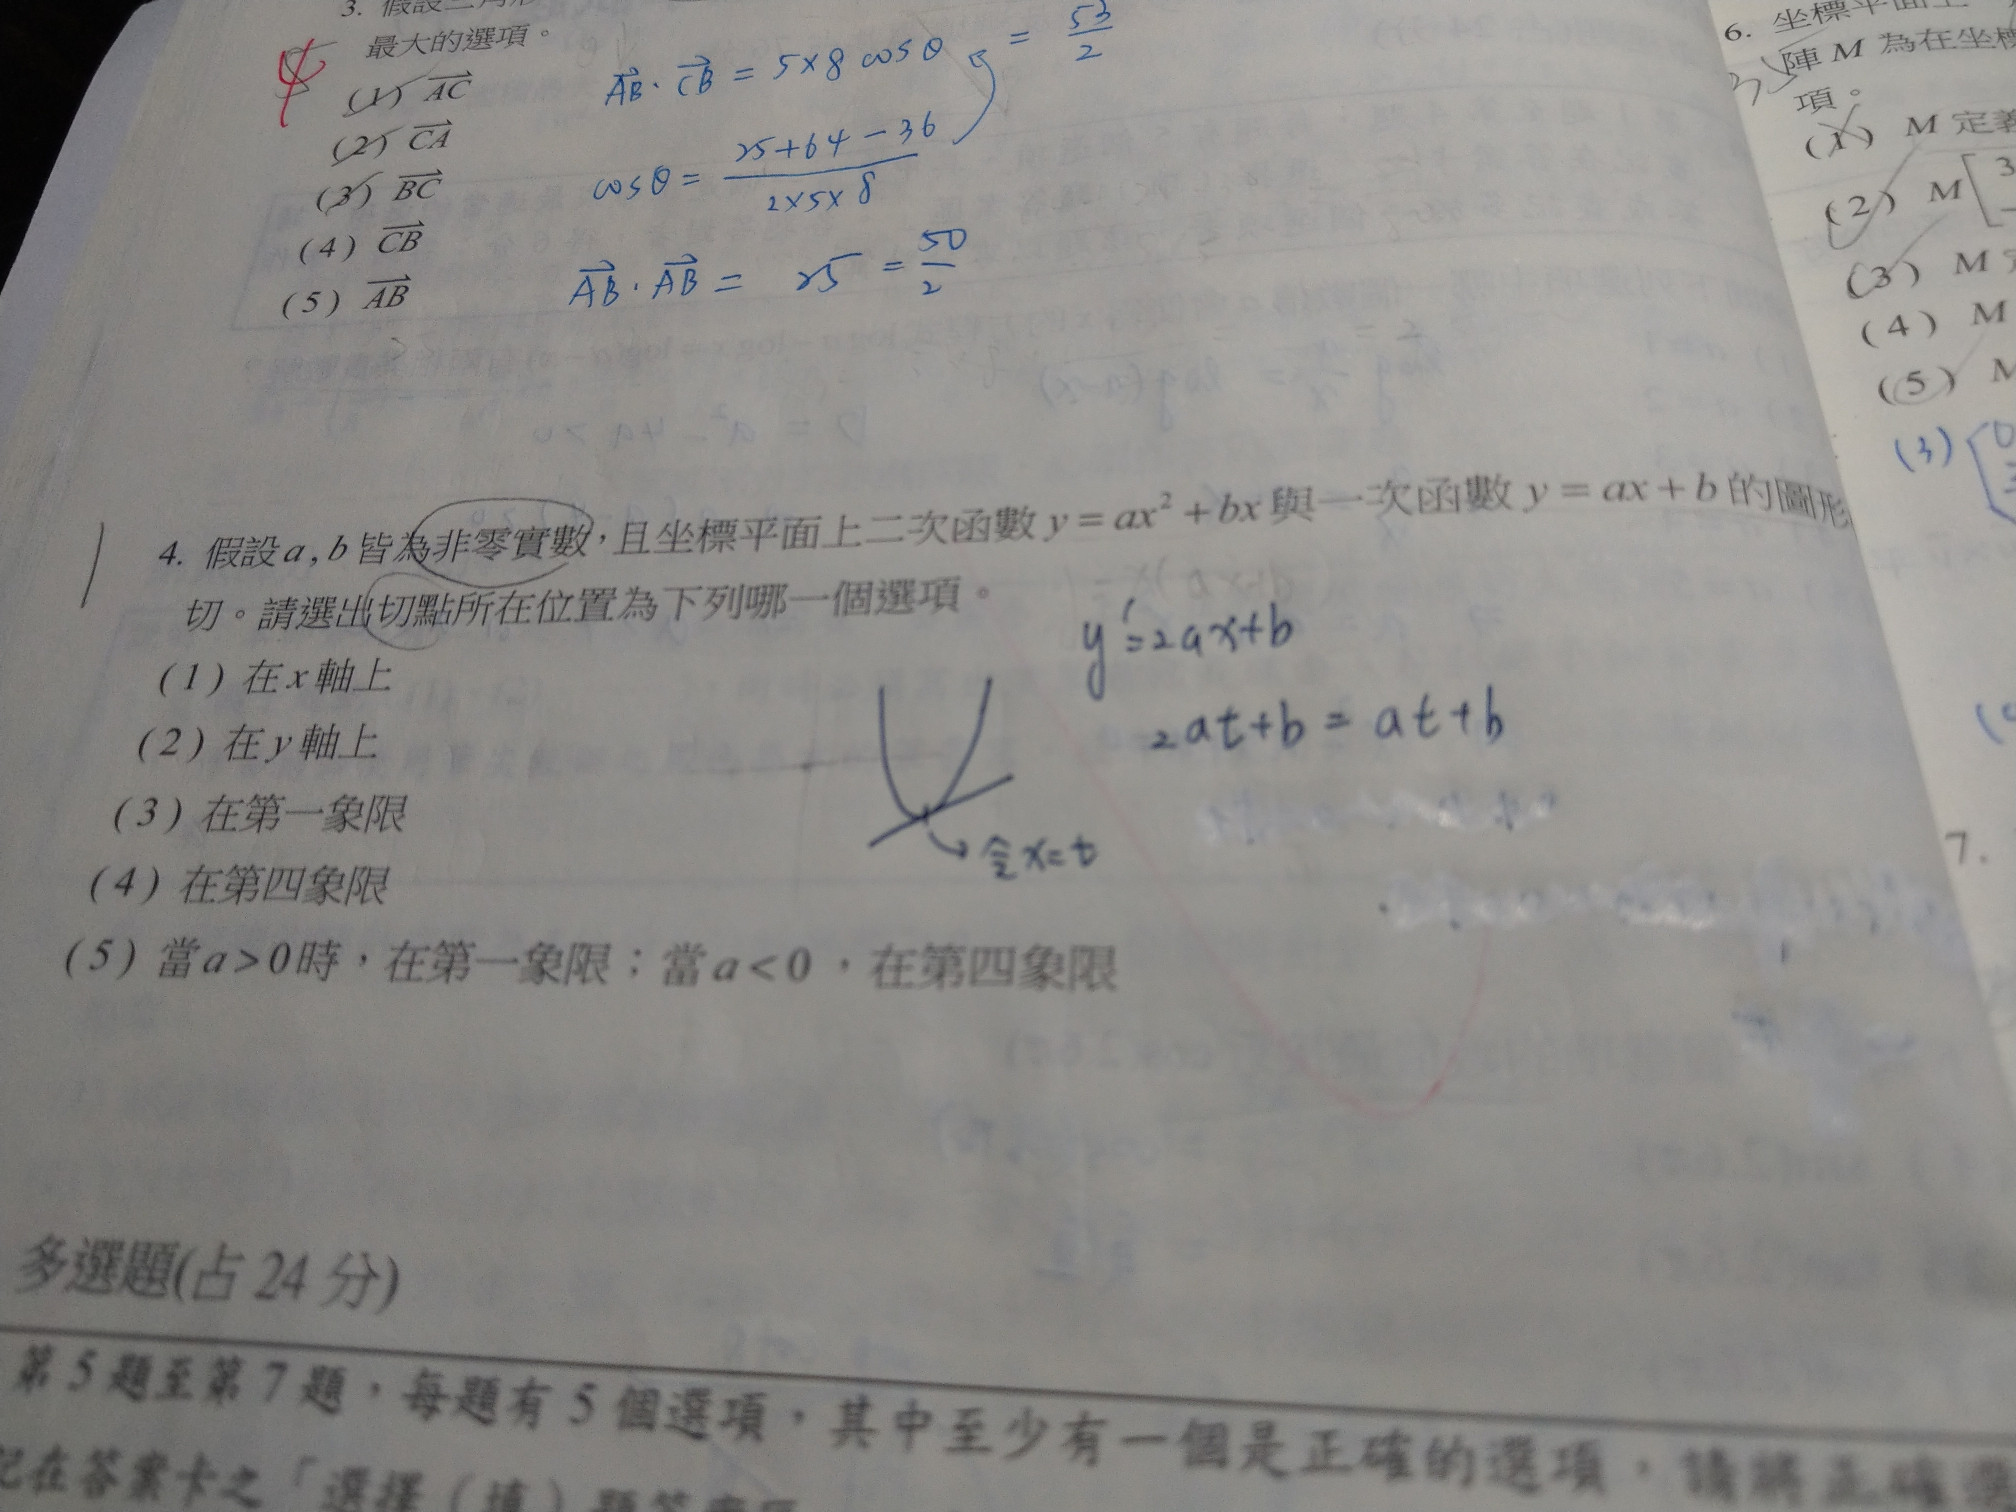 3. 假設三角形
最大的選項。
(1) AC
(2) CA
(3) BC
(4) CB
(5) AB
AB · CB = 5×8 cosθ = 53/2
cosθ = (25+64-36)/(2×5×8)
AB · AB = 25 = 50/2
4. 假設a,b皆為非零實數,且坐標平面上二次函數 y = ax² + bx 與一次函數 y = ax + b 的圖形
切。請選出切點所在位置為下列哪一個選項。
(1) 在x軸上
(2) 在y軸上
(3) 在第一象限
(4) 在第四象限
(5) 當a>0時,在第一象限;當a<0,在第四象限
y' = 2ax+b
2at+b = at+b
令x=t
多選題(占24分)
第5題至第7題,每題有5個選項,其中至少有一個是正確的選項,請將正確
記在答案卡之「選擇(填)題答案區
6. 坐標平面上
陣 M 為在坐標
項。
(1) M 定義
(2) M [3
(3) M
(4) M
(5) M
(3)
7.